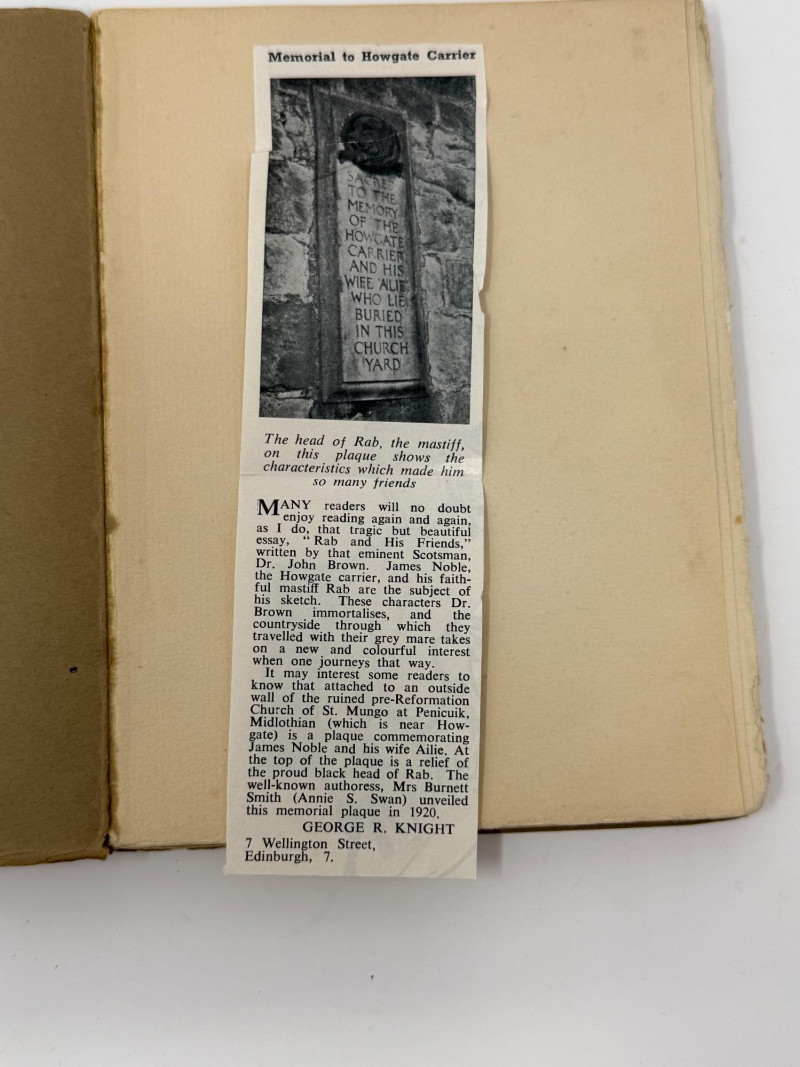 Memorial to Howgate Carrier
SACRED
TO THE
MEMORY
OF THE
HOWGATE
CARRIER
AND HIS
WIFE AILIE
WHO LIE
BURIED
IN THIS
CHURCH
YARD
The head of Rab, the mastiff,
on this plaque shows the
characteristics which made him
so many friends
MANY readers will no doubt
enjoy reading again and again,
as I do, that tragic but beautiful
essay, "Rab and His Friends,"
written by that eminent Scotsman,
Dr. John Brown. James Noble,
the Howgate carrier, and his faith-
ful mastiff Rab are the subject of
his sketch. These characters Dr.
Brown immortalises, and the
countryside through which they
travelled with their grey mare takes
on a new and colourful interest
when one journeys that way.
It may interest some readers to
know that attached to an outside
wall of the ruined pre-Reformation
Church of St. Mungo at Penicuik,
Midlothian (which is near How-
gate) is a plaque commemorating
James Noble and his wife Ailie. At
the top of the plaque is a relief of
the proud black head of Rab. The
well-known authoress, Mrs Burnett
Smith (Annie S. Swan) unveiled
this memorial plaque in 1920.
GEORGE R. KNIGHT
7 Wellington Street,
Edinburgh, 7.